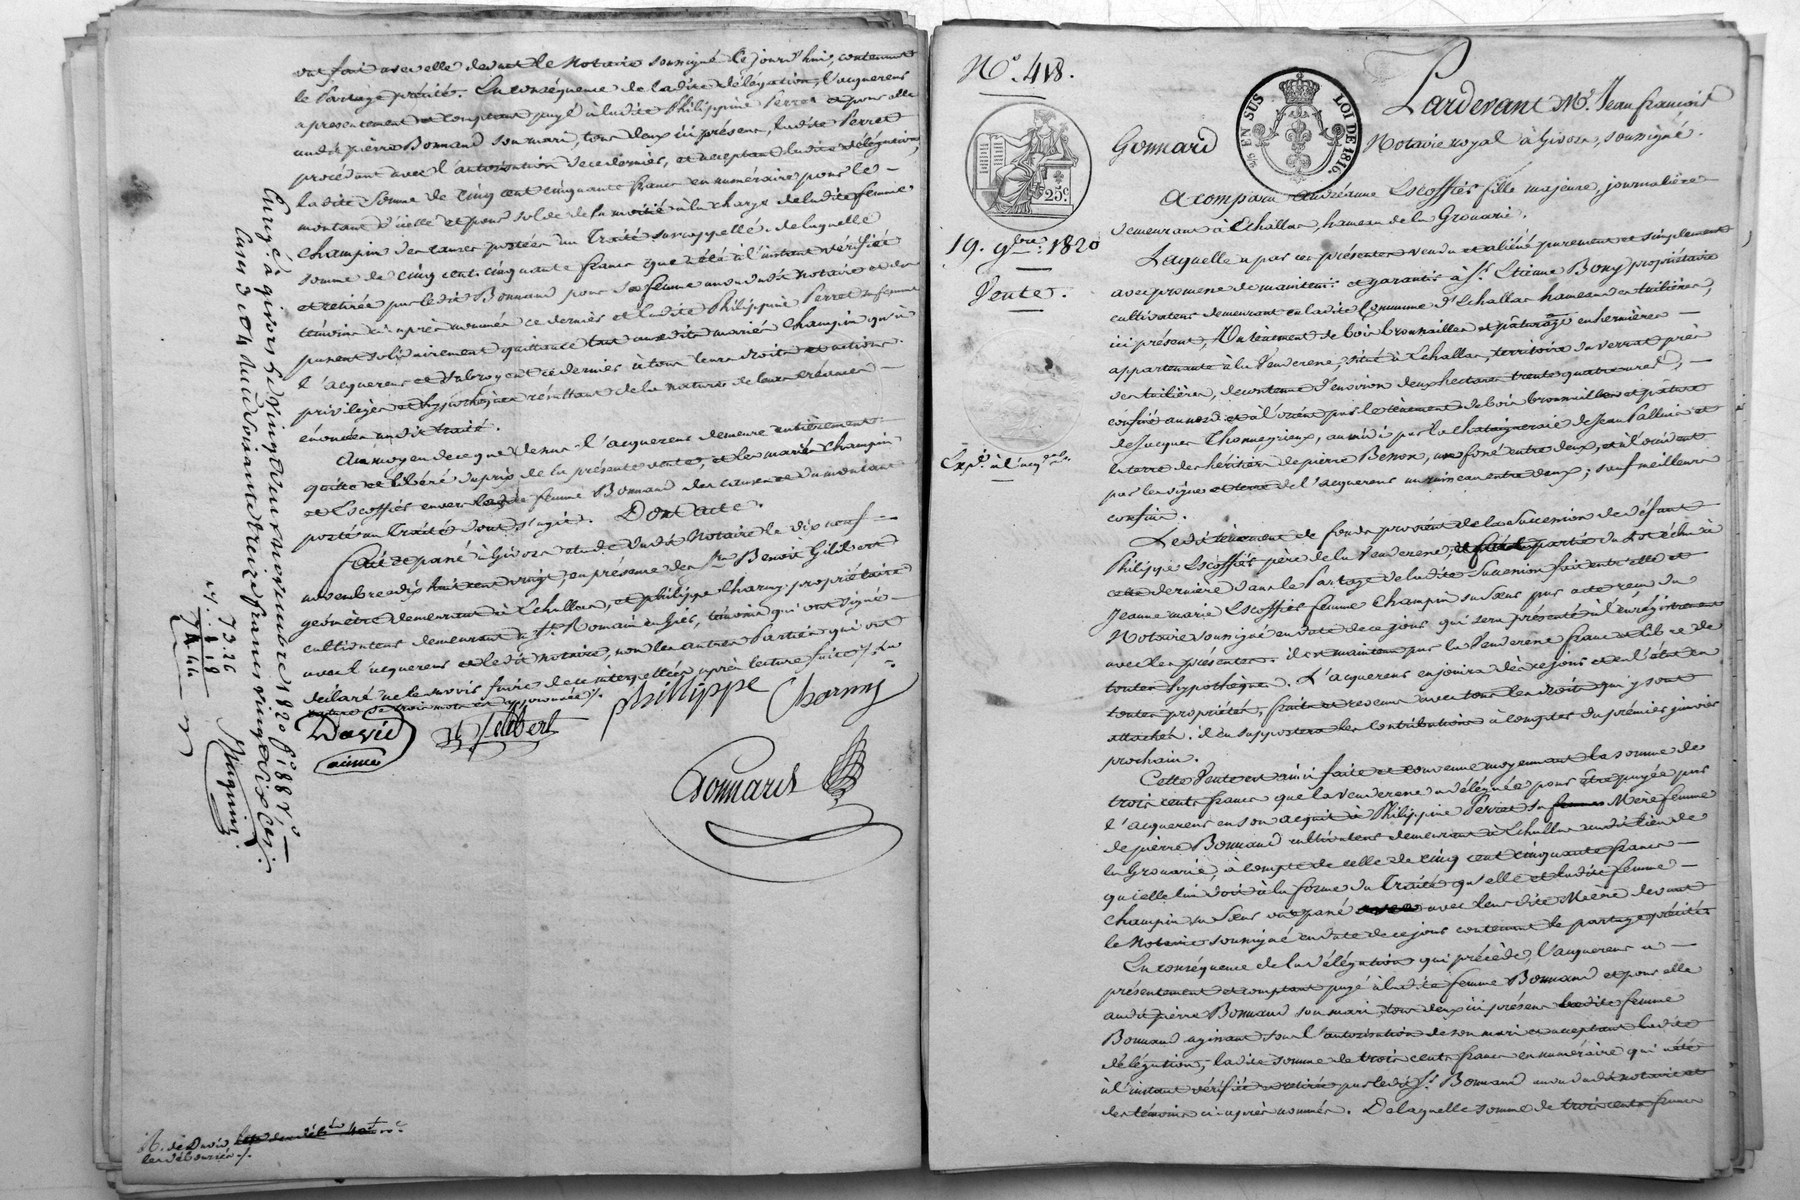 ont fait avec elle devant le Notaire soussigné ce jourd'hui, contenant
le Partage précité. En conséquence de ladite délégation, l'acquereur
a présentement et comptant payé à ladite Philippine Perret et pour elle
audit pierre Bonnand son mari, tous deux ici présens, ladite Perret
procédant avec l'autorisation de ce dernier, et acceptant ladite délégation,
ladite somme de cinq cent cinquante francs en numéraire pour le
montant d'icelle et pour solde de la moitié à la charge de ladite femme
Champin des causes portées au Traité surrappellé. de laquelle
somme de cinq cent cinquante francs que a été à l'instant vérifiée
et retirée par ledit Bonnand pour sa femme au vu dudit Notaire et des
témoins ci après nommés ce dernier et ladite Philippine Perret sa femme
passent solidairement quittance tant auxdits mariés Champin qu'à
l'acquereur et subrogent ce dernier à tous leurs droits et actions
privilèges et hypothèques résultant de la nature de leur créance
énoncée audit traité.
Au moyen de ce que dessus l'acquereur demeure entièrement
quitte et libéré du prix de la présente vente, et les mariés Champin
et Escoffier envers la femme Bonnand des causes et du montant
porté au Traité dont s'agit. Dont acte.
Fait et passé à Givors étude dudit Notaire le dix neuf
novembre dix huit cent vingt, en présence des Srs Benoit Gilibert
géomètre demeurant à Echallas, et philippe Charmy propriétaire
cultivateur demeurant à St. Romain en Giés, témoins qui ont signé
avec l'acquereur et ledit notaire, non les autres Parties qui ont
déclaré ne le savoir faire de ce interpellées après lecture faite
rature de trois mots est approuvée /.
David
ainné
Gilibert
philippe Charmy
Gonnard
Enregé. à givors le vingt deux novembre 1820 fo. 188 Vo.
Cases 3 et 4
73.26
R. de David
N°. 418.
25c.
19. 9bre. 1820
Vente.
Expé. à l'acqr.
EN SUS LOI DE 1816.
Pardevant Me. Jean françois
Gonnard Notaire royal à Givors, soussigné.
A comparu Andréanne Escoffier fille majeure, journalière
demeurant à Echallas, hameau de la Grouarie.
Laquelle a par ces présentes vendu et aliéné purement et simplement
avec promesse de maintenir et garantir à Sr. Etienne Bony propriétaire
cultivateur demeurant en ladite Commune d'Echallas hameau des tuilières,
ici présent, Un tènement de bois broussailles et pâturage en hermières
appartenante à la Venderesse, situé à Echallas, territoire du verrat près
des tuilières, de contenue d'environ deux hectares trente quatre ares,
confiné au nord et à l'orient par le tènement de bois broussailles et pâture
de Jacques Thonnerieux, au midi par la chataigneraie de Jean Palluis et
la terre des héritiers de pierre Besson, un fossé entre deux, et à l'occident
par les vignes et terre de l'acquereur un ruisseau entre deux; sauf meilleurs
confins.
Ledit tènement de fonds provient de la Succession de défunt
Philippe Escoffier père de la Venderesse, partie du lot échu à
cette dernière dans le Partage de ladite Succession fait entr'elle et
Jeanne marie Escoffier femme Champin sa Sœur par acte reçu du
Notaire soussigné en date de ce jour qui sera présenté à l'enregistrement
avec les présentes. il est maintenu par la Venderesse franc et libre de
toutes hypothèques. L'acquereur en jouira dès ce jour et en l'état en
toutes propriétés, fruits et revenus avec tous les droits qui y sont
attachés. il en supportera les Contributions à compter du premier janvier
prochain.
Cette Vente est ainsi faite et convenue moyennant la somme de
trois cents francs que la venderesse a déléguée pour être payée par
l'acquereur en son acquit à Philippine Perret sa femme Mère femme
de pierre Bonnand cultivateur demeurant à Echallas audit lieu de
la Grouarie, à compte de celle de cinq cent cinquante francs
qu'elle lui doit à la forme du Traité qu'elle et ladite femme
Champin sa Sœur ont passé avec leurdite Mère devant
le Notaire soussigné en date de ce jour contenant le partage précité.
En conséquence de la délégation qui précède, l'acquereur a
présentement et comptant payé à ladite femme Bonnand et pour elle
audit pierre Bonnand son mari, tous deux ici présens ladite femme
Bonnand agissant sous l'autorisation de son mari et acceptant ladite
délégation, ladite somme de trois cents francs en numéraire qui a été
à l'instant vérifiée et retirée par ledit Sr. Bonnand au vu dudit notaire et
des témoins ci-après nommés. De laquelle somme de trois cents francs